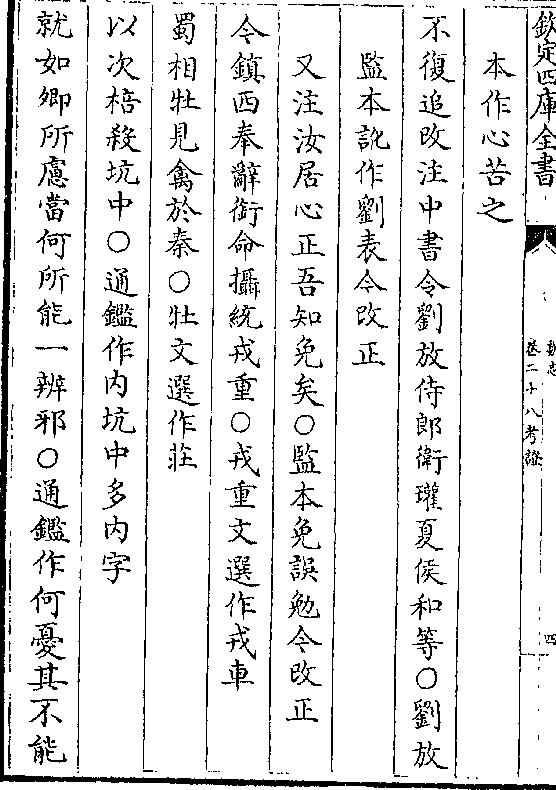 欽定四庫全書
魏志
卷二十八考證
四
本作心苦之
不復追改注中書令劉放侍郎衛瓘夏侯和等○劉放
監本訛作劉表令改正
又注汝居心正吾知免矣○監本免誤勉令改正
今鎮西奉辭銜命攝統戎重○戎重文選作戎車
蜀相牡見禽於秦○牡文選作莊
以次棓殺坑中○通鑑作内坑中多内字
就如卿所慮當何所能一辨邪○通鑑作何憂其不能